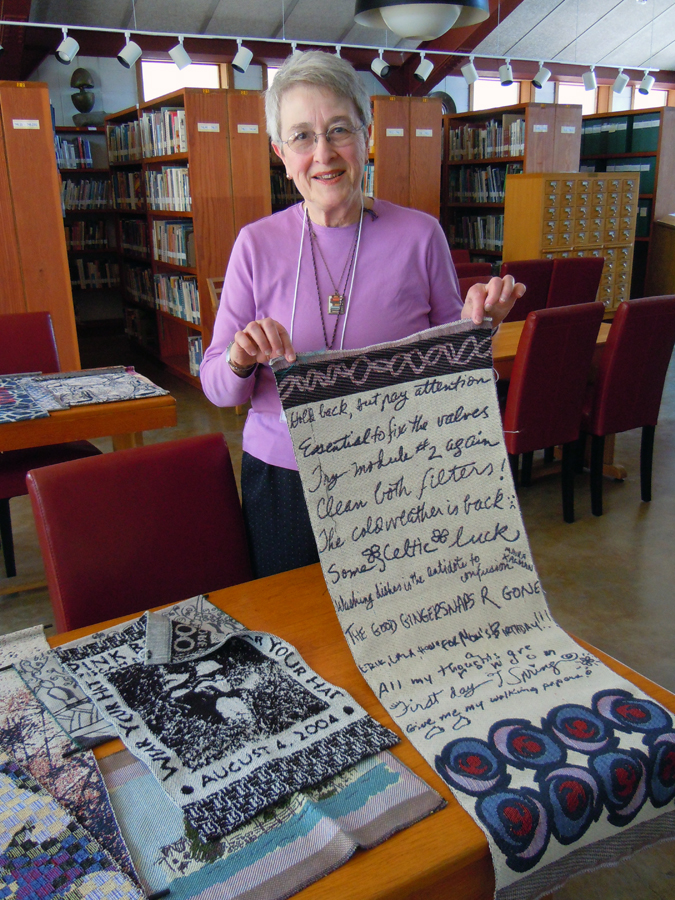 Hold back, but pay attention
Essential to fix the valves
Try module #2 again
Clean both filters!
The cold weather is back
Some Celtic luck
Washing dishes is the antidote to confusion
THE GOOD GINGERSNAPS R GONE
FOR MOM'S BIRTHDAY!!!
All my thoughts are
First day of Spring
Give me my walking papers!
PINK
YOUR HAT
WEAR YOUR
AUGUST 4, 2004